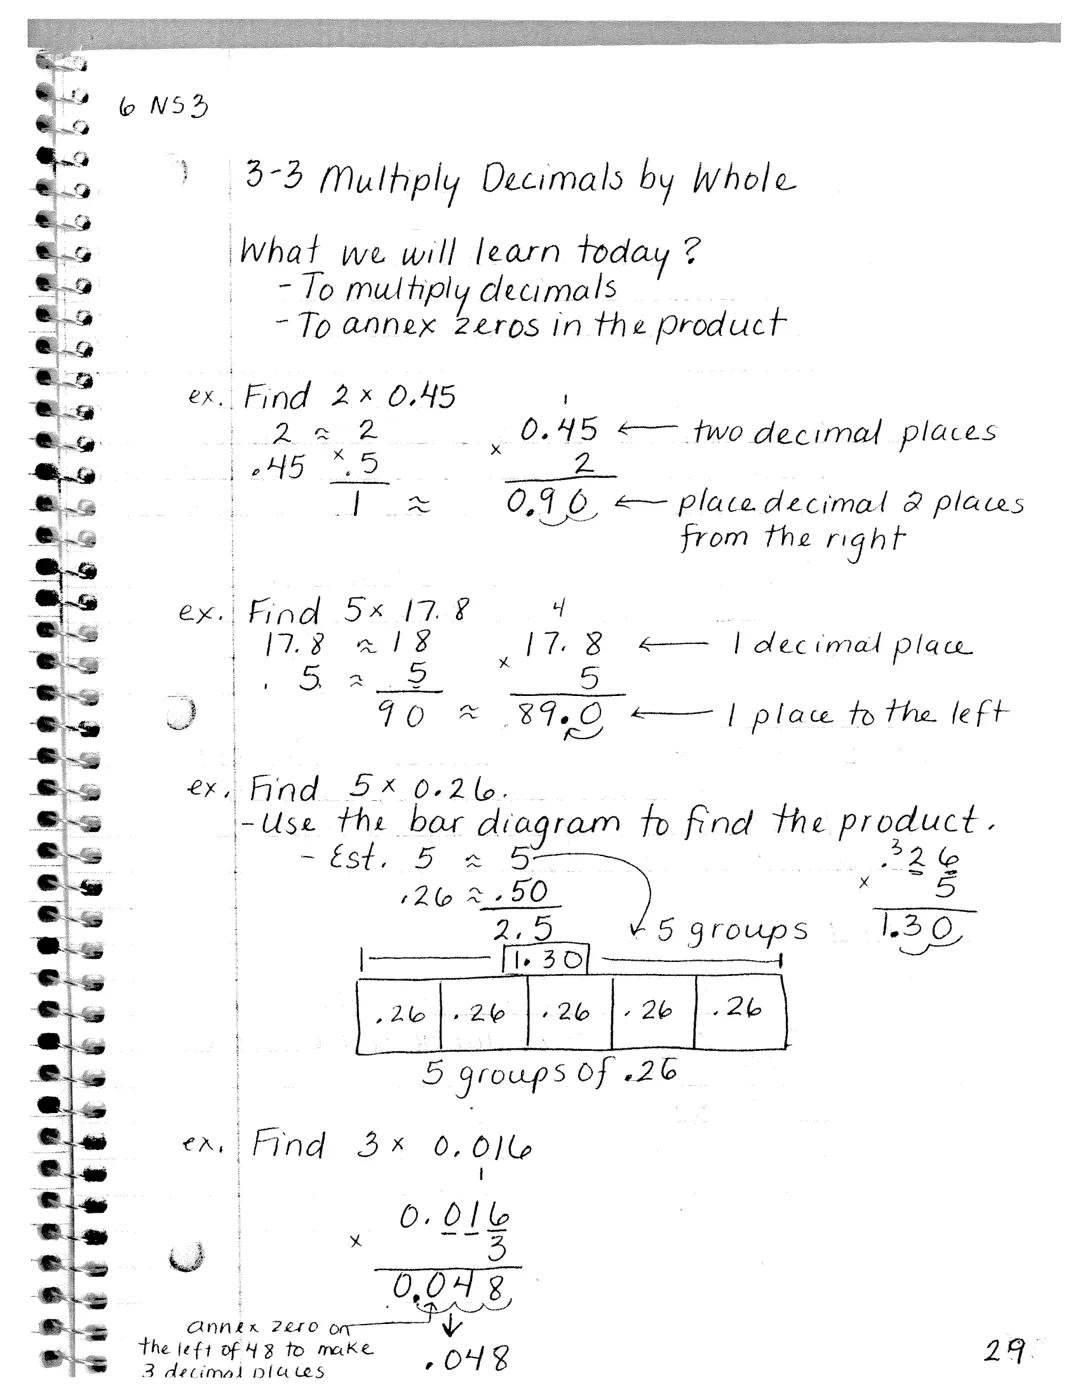 6 NS3
3-3 Multiply Decimals by Whole
What we will learn today?
- To multiply decimals
- To annex zeros in the product
ex. Find 2 x 0.45
2 ≈ 2
.45 x .5
1 ≈
1
0.45 ← two decimal places
x 2
0.90 ← place decimal 2 places
from the right
ex. Find 5 x 17.8
17.8 ≈ 18
5 ≈ 5
90 ≈
4
17.8 ← 1 decimal place
x 5
89.0 ← 1 place to the left
ex. Find 5 x 0.26.
- Use the bar diagram to find the product.
- Est. 5 ≈ 5
.26 ≈ .50
2.5
5 groups
3
.26
x 5
1.30
1.30
.26 .26 .26 .26 .26
5 groups of .26
ex. Find 3 x 0.016
1
0.016
x 3
0.048
annex zero on
the left of 48 to make
3 decimal places
.048
29